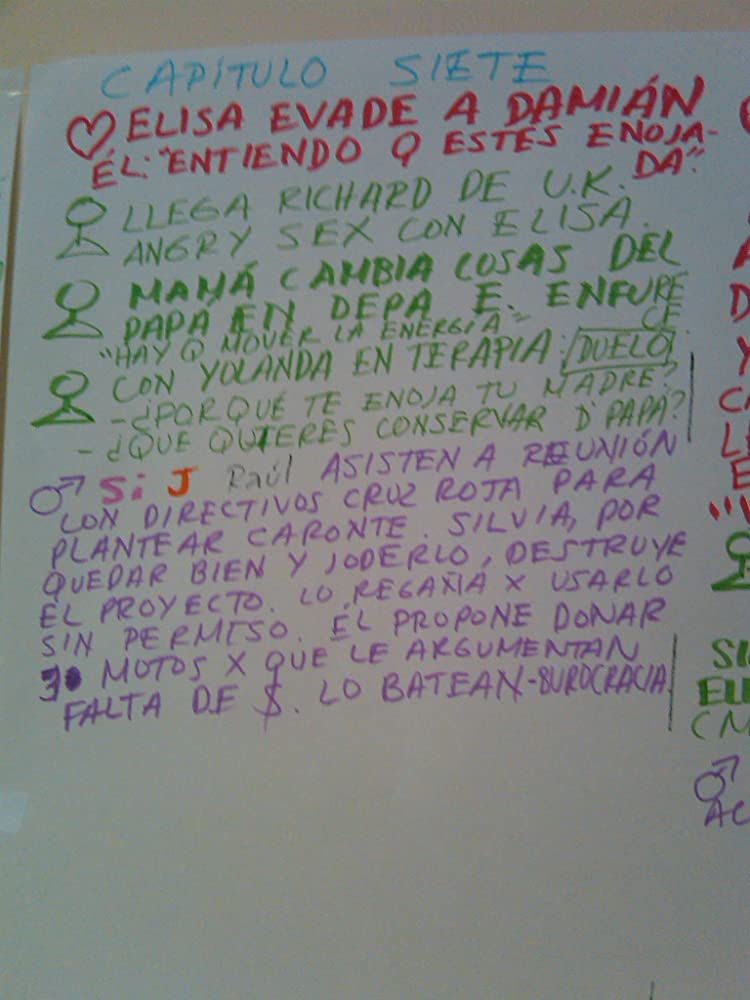 CAPÍTULO SIETE
ELISA EVADE A DAMIÁN
ÉL: "ENTIENDO Q ESTÉS ENOJA-
DA".
LLEGA RICHARD DE U.K.
ANGRY SEX CON ELISA.
MAMÁ CAMBIA COSAS DEL
PAPÁ EN DEPA E. ENFURE
CE.
"HAY Q MOVER LA ENERGÍA"
CON YOLANDA EN TERAPIA: DUELO
- ¿PORQUÉ TE ENOJA TU MADRE?
- ¿QUÉ QUIERES CONSERVAR D' PAPÁ?
Si J Raúl ASISTEN A REUNIÓN
CON DIRECTIVOS CRUZ ROJA PARA
PLANTEAR CARONTE. SILVIA, POR
QUEDAR BIEN Y JODERLO, DESTRUYE
EL PROYECTO. LO REGAÑA X USARLO
SIN PERMISO. ÉL PROPONE DONAR
30 MOTOS X QUE LE ARGUMENTAN
FALTA DE $. LO BATEAN-BUROCRACIA